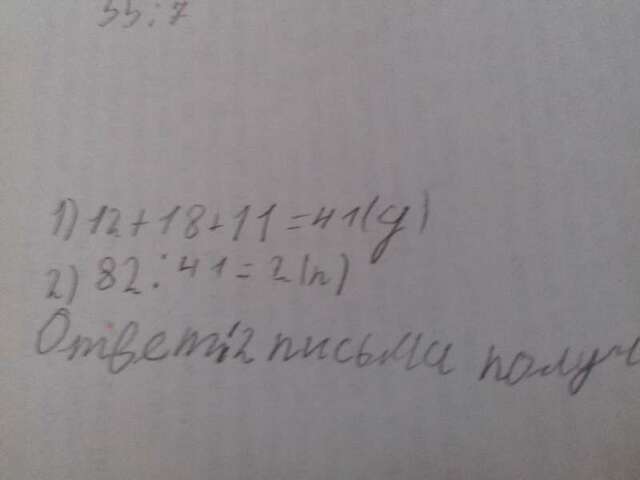 1) 12 + 18 + 11 = 41 (у)
2) 82 : 41 = 2 (п)
Ответ: 2 письма получ